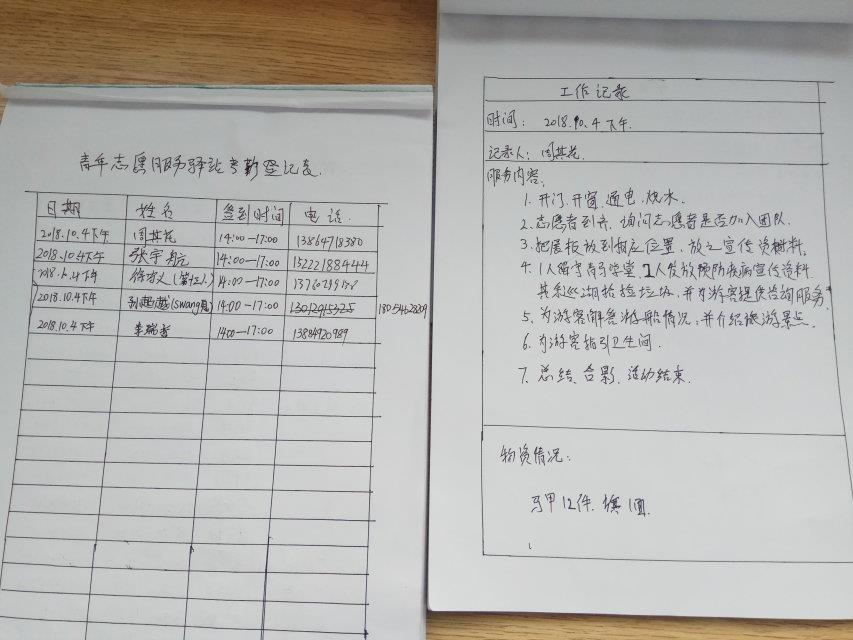 青年志愿服务驿站考勤登记表
日期 姓名 签到时间 电话
2018.10.4下午 周其花 14:00—17:00 13864718380
2018.10.4下午 张宇 14:00—17:00 15222188444
14:00—17:00
2018.10.4下午 孙 (swang) 14:00—17:00
2018.10.4下午 李瑞 14:00—17:00 13884920989
工作记录
时间: 2018.10.4下午.
记录人: 周其花
服务内容:
1. 开门、开窗、通电、烧水.
2. 志愿者到齐, 询问志愿者是否加入团队.
3. 把展板放到相应位置, 放上宣传资料.
4. 1人留守青年学堂, 1人发放预防疾病宣传资料
其余巡湖捡捡垃圾, 并为游客提供咨询服务.
5. 为游客解答游船情况, 并介绍旅游景点.
6. 为游客指引卫生间.
7. 总结、合影、活动结束.
物资情况:
马甲12件. 旗1面.